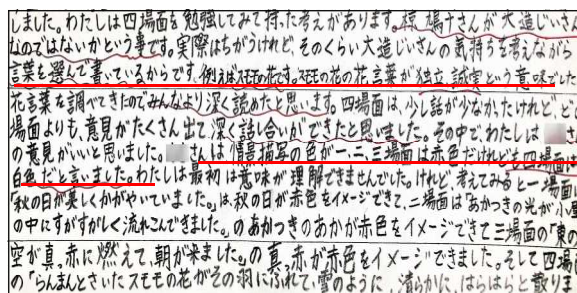 しました。わたしは四場面を勉強してみて持った考えがあります。椋鳩十さんが大造じいさ
なのではないかという事です。実際はちがうけれど、そのくらい大造じいさんの気持ちを考えながら
言葉を選んで書いているからです。例えばスモモの花です。スモモの花の花言葉が独立、誠実という意味でした
花言葉を調べてきたのでみんなより深く読めたと思います。四場面は、少し話が少なかったけれど、ど
場面よりも、意見がたくさん出て深く話し合いができたと思いました。その中でわたしは さ
の意見がいいと思いました。 さんは「情景描写の色が一、二、三場面は赤色だけれども四場面は
白色だと言いました。わたしは最初は意味が理解できませんでした。けれど、考えてみると一場面
「秋の日が美しくかがやいていました。」は、秋の日が赤色をイメージできて、二場面は「あかつきの光が小屋
の中にすがすがしく流れこんできました。」のあかつきのあかが赤色をイメージできて三場面の「東の
空が真っ赤に燃えて、朝が来ました。」の真っ赤が赤色をイメージできました。そして四場面
の「らんまんとさいたスモモの花がその羽にふれて、雪のように、清らかに、はらはらと散りま